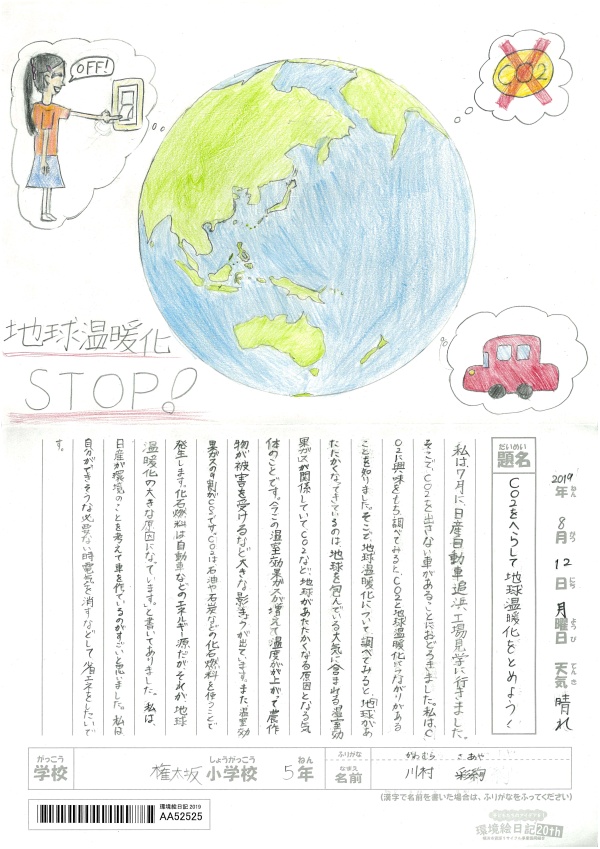 OFF!
CO2
地球温暖化
STOP!
2019年ねん 8月がつ 12日にち 月曜日ようび 天気てんき 晴れ
だいめい
題名
CO2をへらして地球温暖化をとめよう!
私は、7月に、日産自動車追浜工場見学に行きました。
そこで、CO2を出さない車があることにおどろきました。私は、C
O2に興味をもち、調べてみると、CO2と地球温暖化につながりがある
ことを知りました。そこで、地球温暖化について調べてみると、「地球があ
たたかくなってきているのは、地球を包んでいる大気に含まれる温室効
果ガスが関係していてCO2など、地球があたたかくなる原因となる気
体のことです。今この温室効果ガスが増えて温度がが上がって農作
物が被害を受けるなど大きな影きょうが出ています。また温室効
果ガスの9割がCO2です。CO2は石油や石炭などの化石燃料を使うことで
発生します。化石燃料は自動車などのエネルギー源だがそれが地球
温暖化の大きな原因になっています。」と書いてありました。私は、
日産が環境のことを考えて車を作っているのがすごいと思いました。私は
自分ができそうな必要ない時電気を消すなどして省エネをしたいで
す。
がっこう
学校
権太坂 小学校しょうがっこう 5年ねん
ふりがな
なまえ
名前
かわむら さあや
川村 彩綱
(漢字で名前を書いた場合は、ふりがなをふってください)
環境絵日記 2019
AA52525
環境絵日記20th